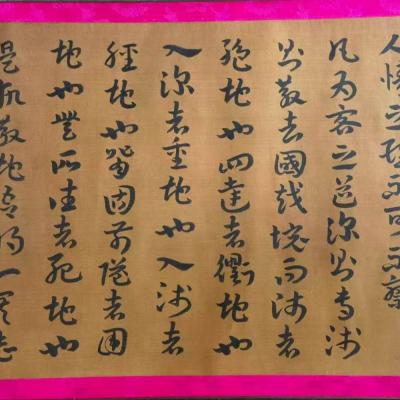 人情之理不可不察
凡為客之道深則專淺
則散去國越境而師者
絕地也四達者衢地也
入深者重地也入淺者
輕地也背固前隘者圍
地也無所往者死地也
是故散地吾將一其志